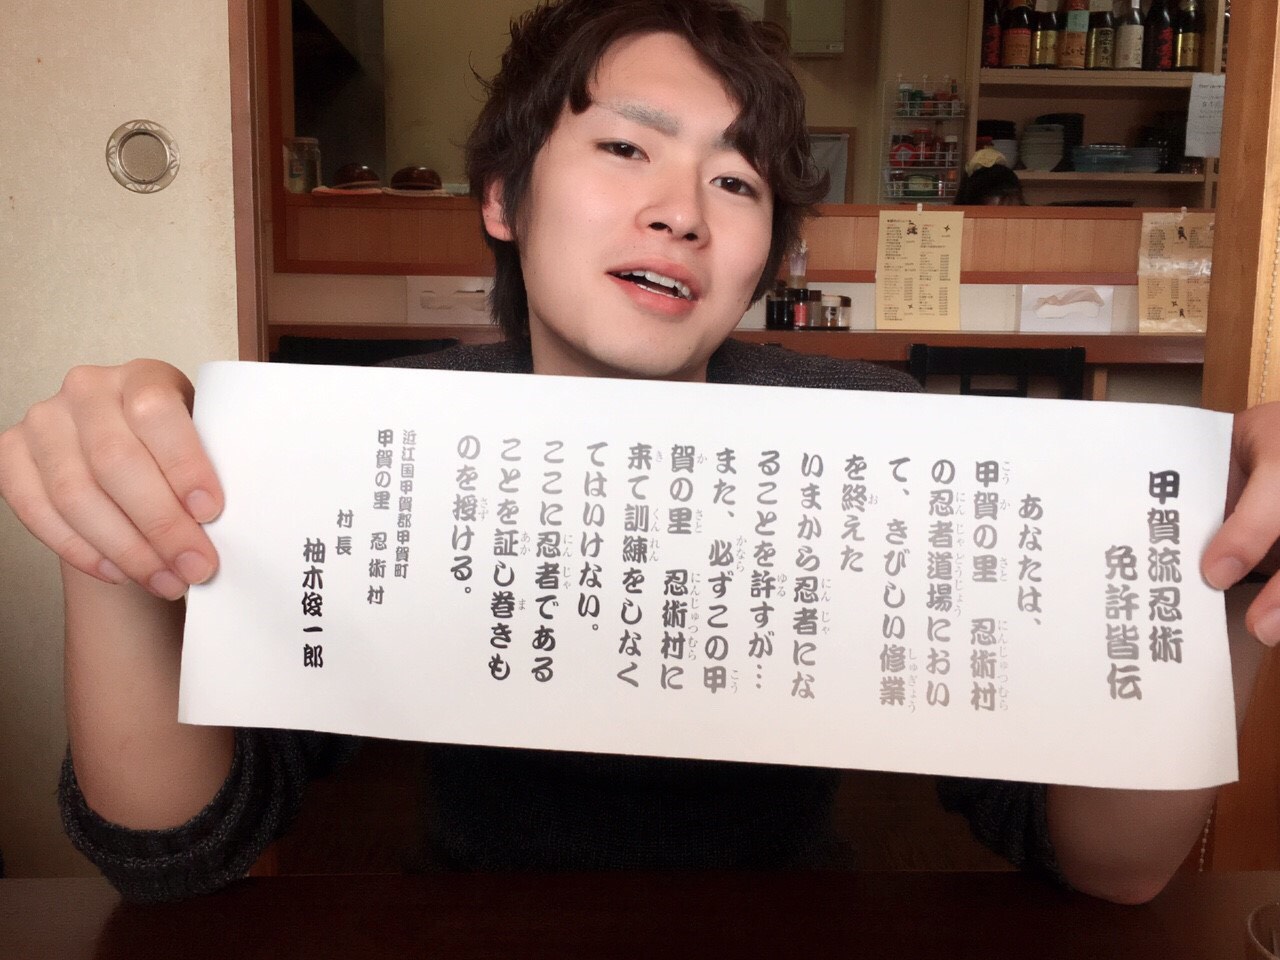 甲賀流忍術
免許皆伝
あなたは、
甲賀の里 忍術村
の忍者道場におい
て、きびしい修業
を終えた
いまから忍者にな
ることを許すが…
また、必ずこの甲
賀の里 忍術村に
来て訓練をしなく
てはいけない。
ここに忍者である
ことを証し巻きも
のを授ける。
近江国甲賀郡甲賀町
甲賀の里 忍術村
村長
柚木俊一郎